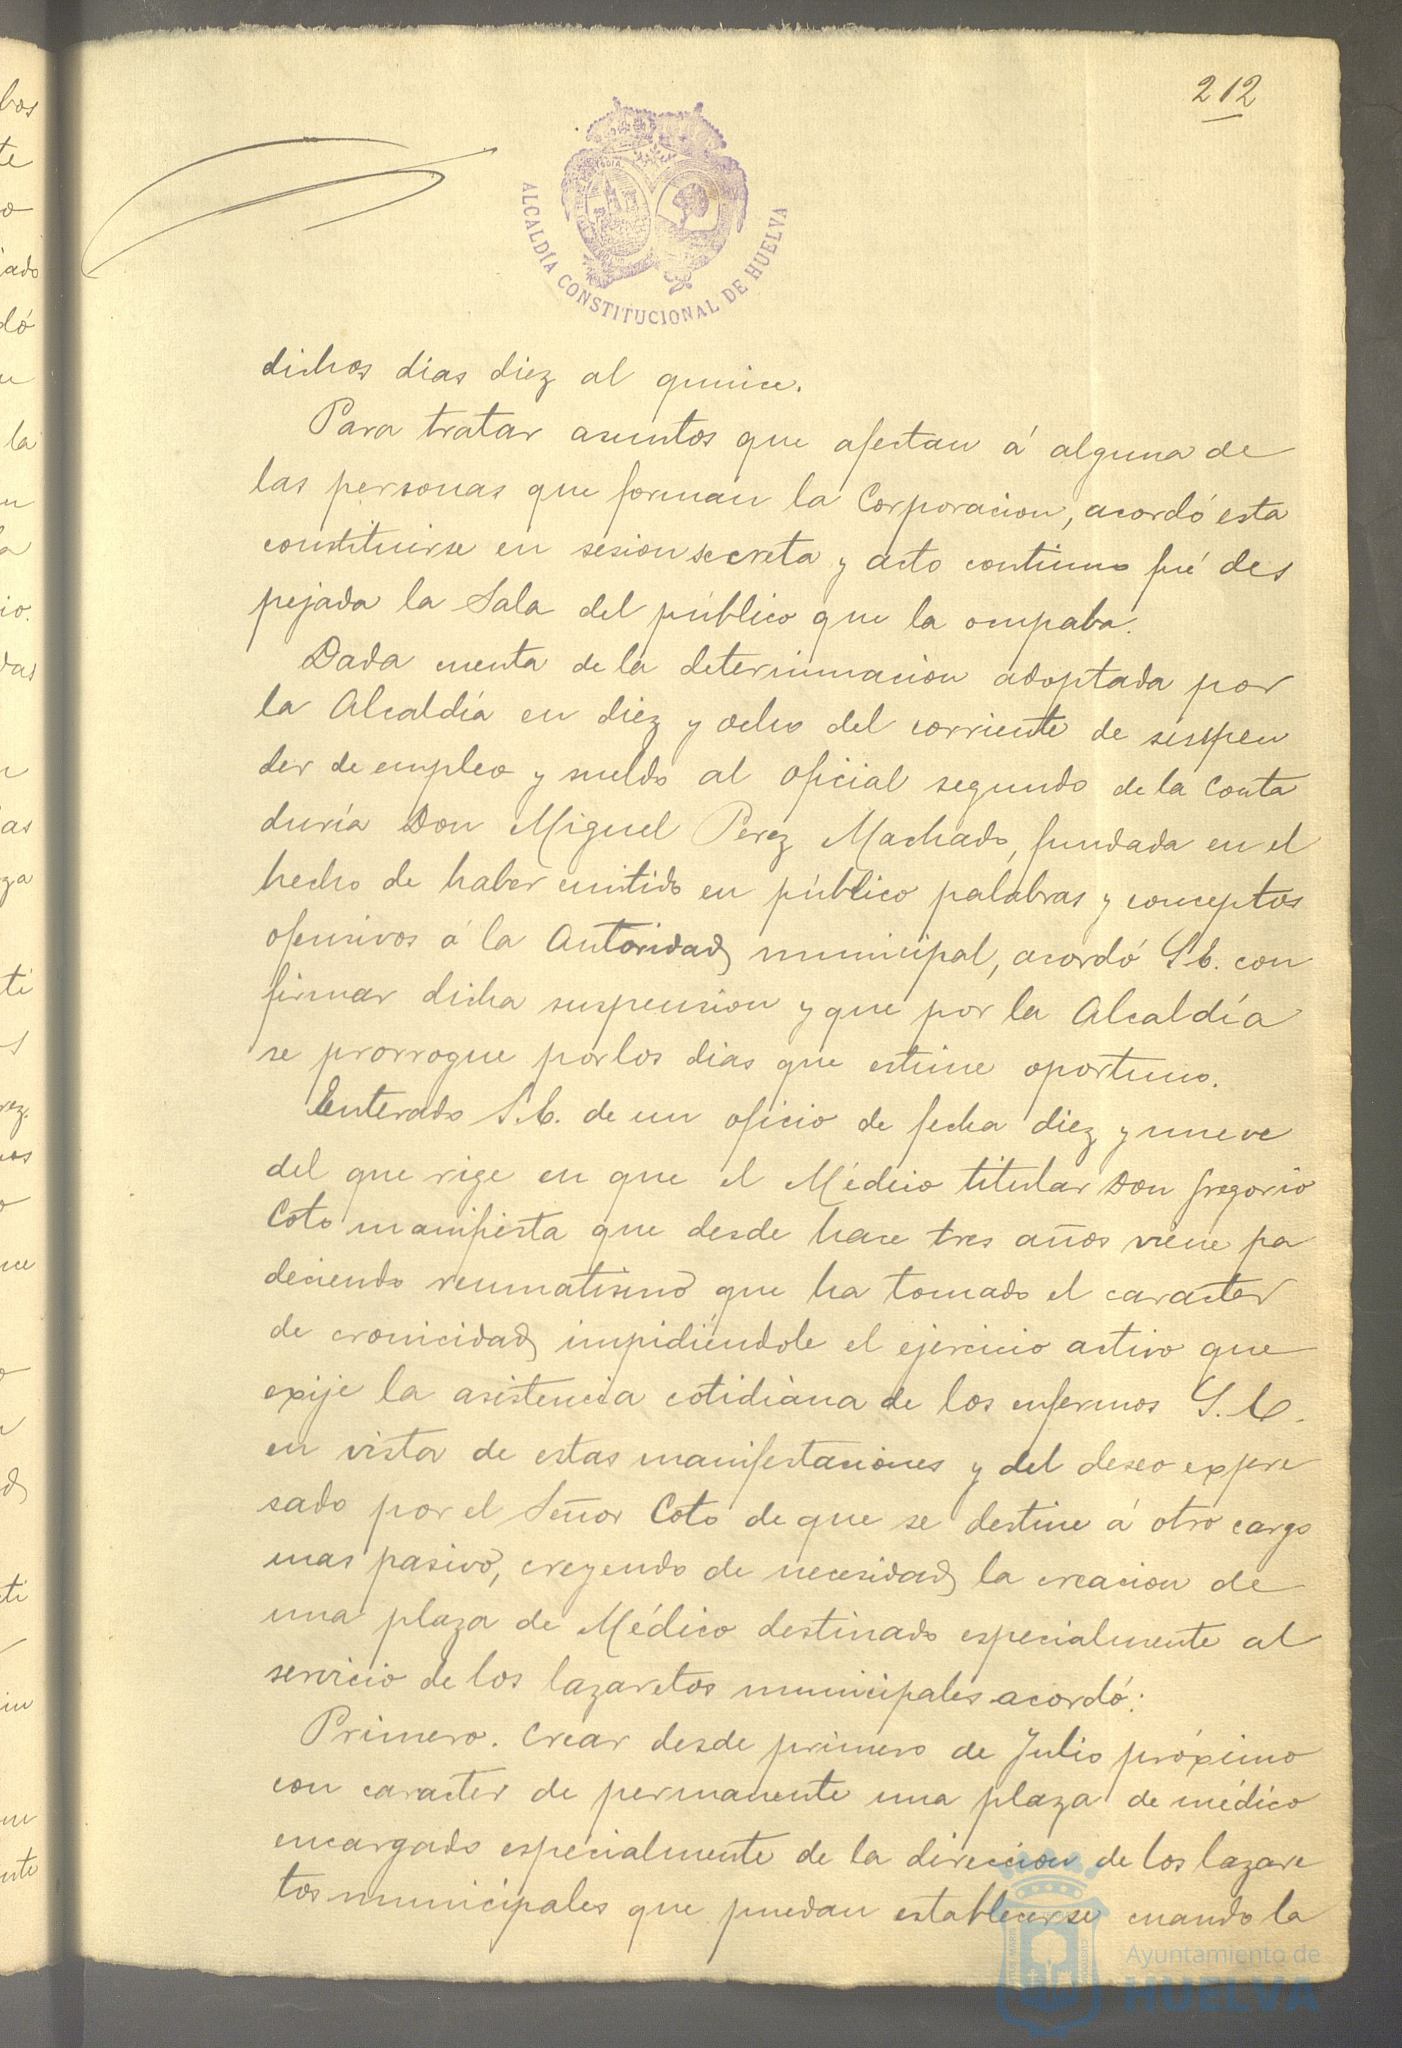 212
ALCALDÍA CONSTITUCIONAL DE HUELVA
dichos dias diez al quince.
Para tratar asuntos que afectan á alguna de
las personas que forman la Corporacion, acordó esta
constituirse en sesion secreta y acto continuo fué des
pejada la Sala del público que la ocupaba.
Dada cuenta de la determinacion adoptada por
la Alcaldía en diez y ocho del corriente de suspen
der de empleo y sueldo al oficial segundo de la Conta
duría Don Miguel Perez Machado, fundada en el
hecho de haber emitido en público palabras y conceptos
ofensivos á la Autoridad municipal, acordó S.C. con
firmar dicha suspension y que por la Alcaldía
se prorrogue por los dias que estime oportuno.
Enterado S.C. de un oficio de fecha diez y nueve
del que rige en que el Médico titular Don Gregorio
Coto manifiesta que desde hace tres años viene pa
deciendo reumatismo que ha tomado el caracter
de cronicidad impidiéndole el ejercicio activo que
exije la asistencia cotidiana de los enfermos S.C.
en vista de estas manifestaciones y del deseo expre
sado por el Señor Coto de que se destine á otro cargo
mas pasivo, creyendo de necesidad la creacion de
una plaza de Médico destinado especialmente al
servicio de los lazaretos municipales acordó:
Primero. Crear desde primero de Julio próximo
con caracter de permanente una plaza de médico
encargado especialmente de la direccion de los lazare
tos municipales que puedan establecerse cuando la
Ayuntamiento de
HUELVA